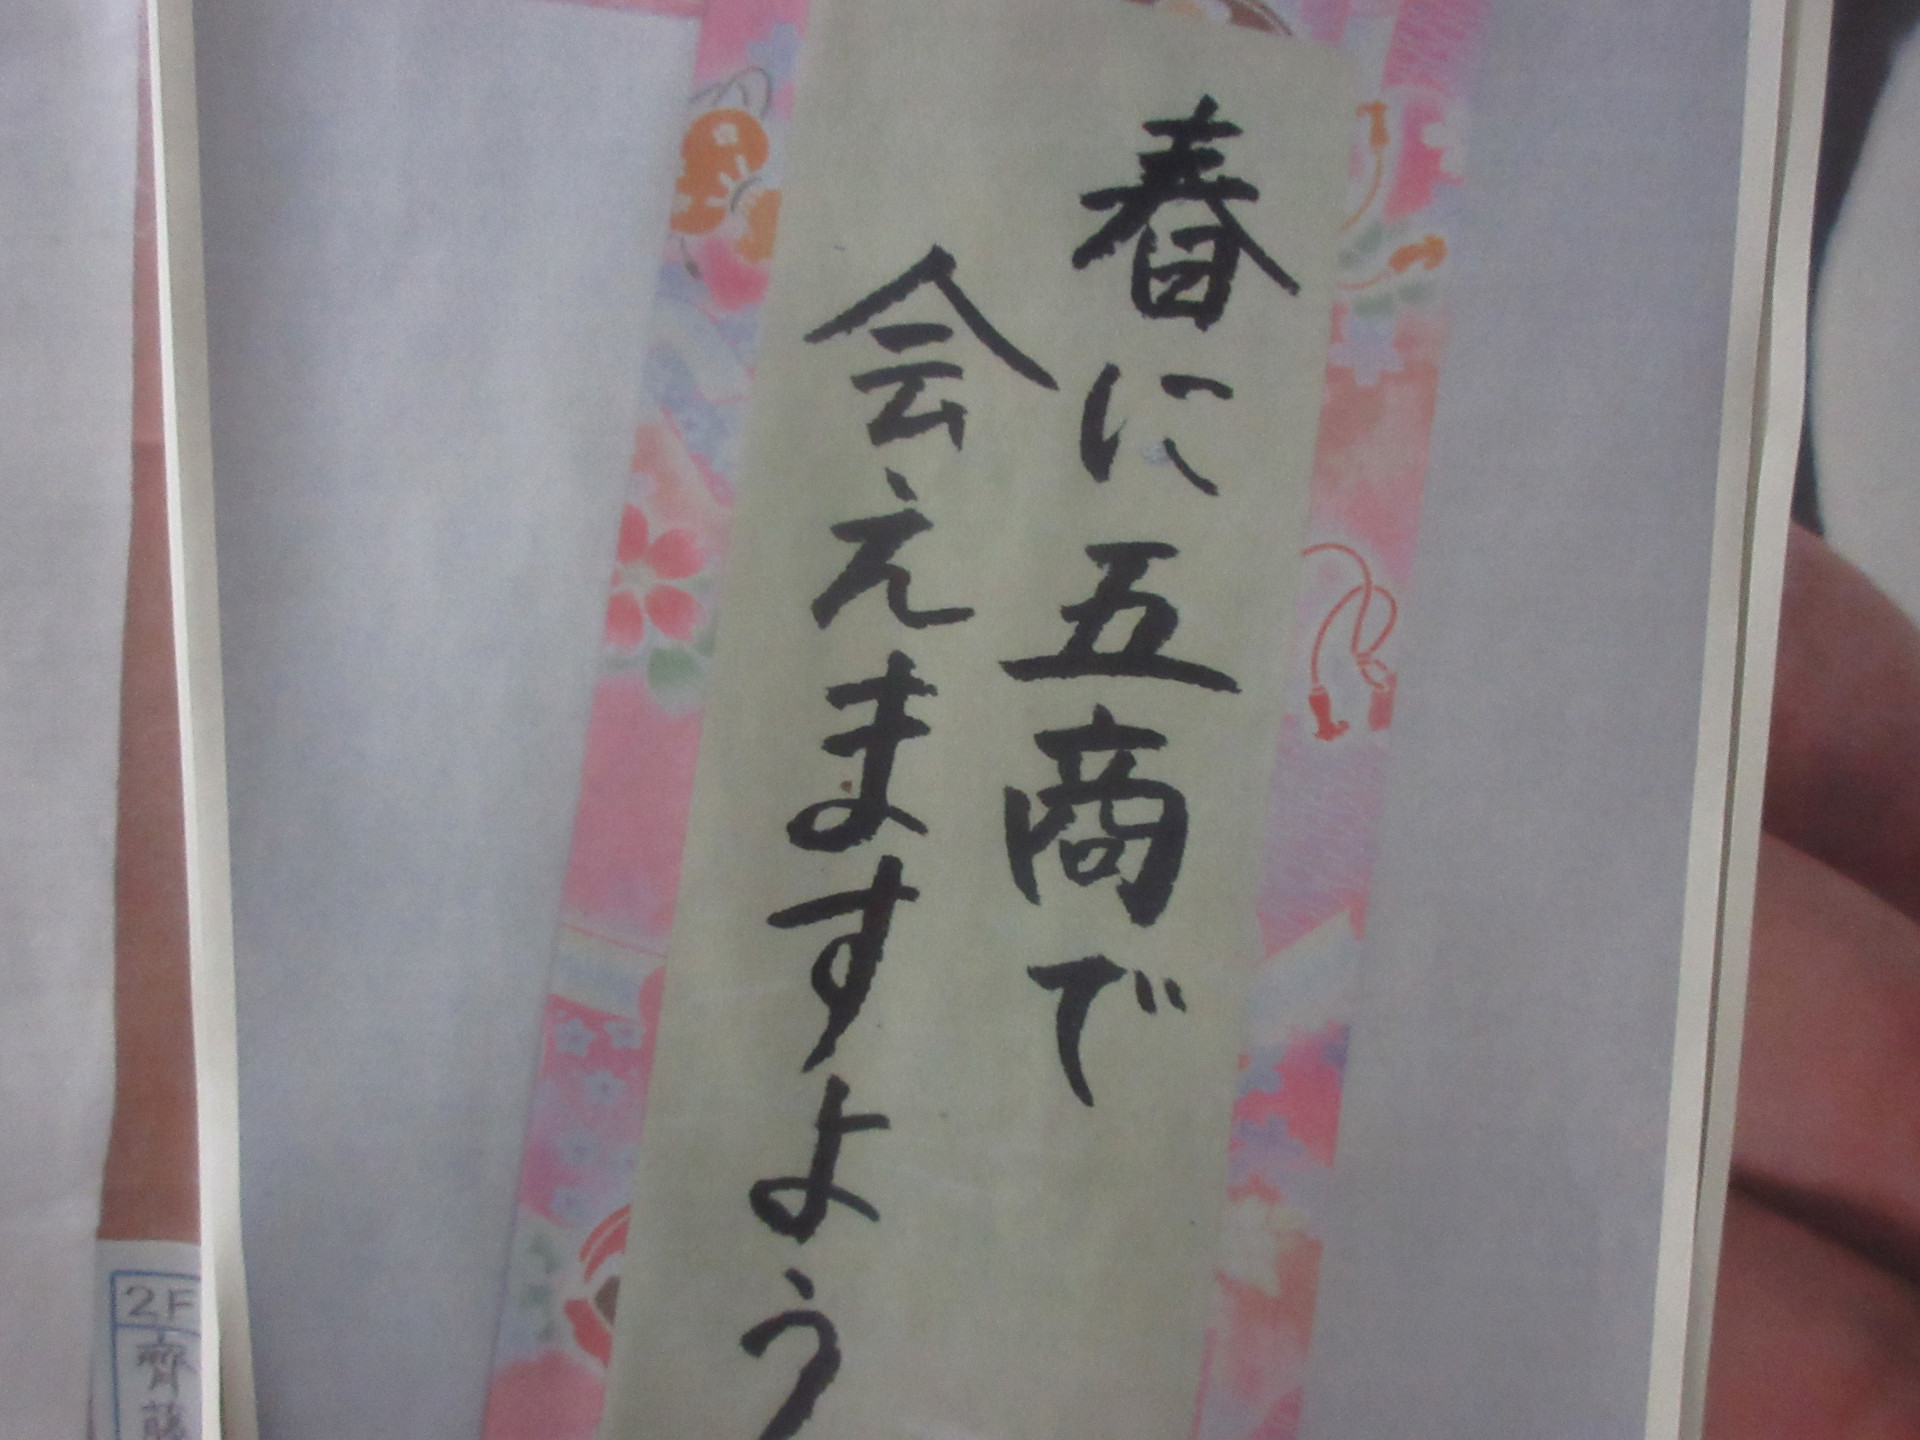 春に五商で
会えますよう
2F
齊藤